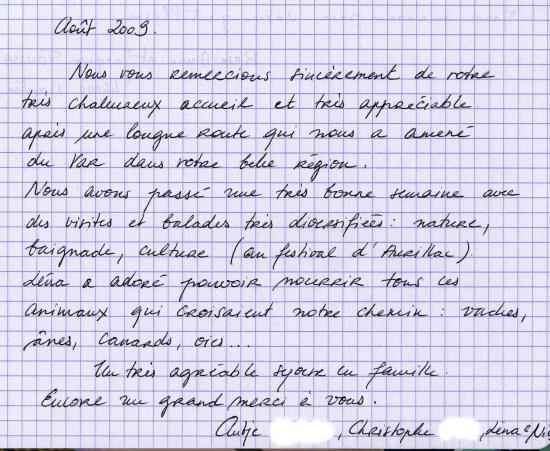 Août 2009.
Nous vous remercions sincèrement de votre
très chaleureux accueil et très appréciable
après une longue route qui nous a amené
du Var dans votre belle région.
Nous avons passé une très bonne semaine avec
des visites et balades très diversifiées : nature,
baignade, culture (au festival d'Aurillac).
Léna a adoré pouvoir nourrir tous ces
animaux qui croisaient notre chemin : vaches,
ânes, canards, oies...
Un très agréable séjour en famille.
Encore un grand merci à vous.
Antje , Christophe , Léna